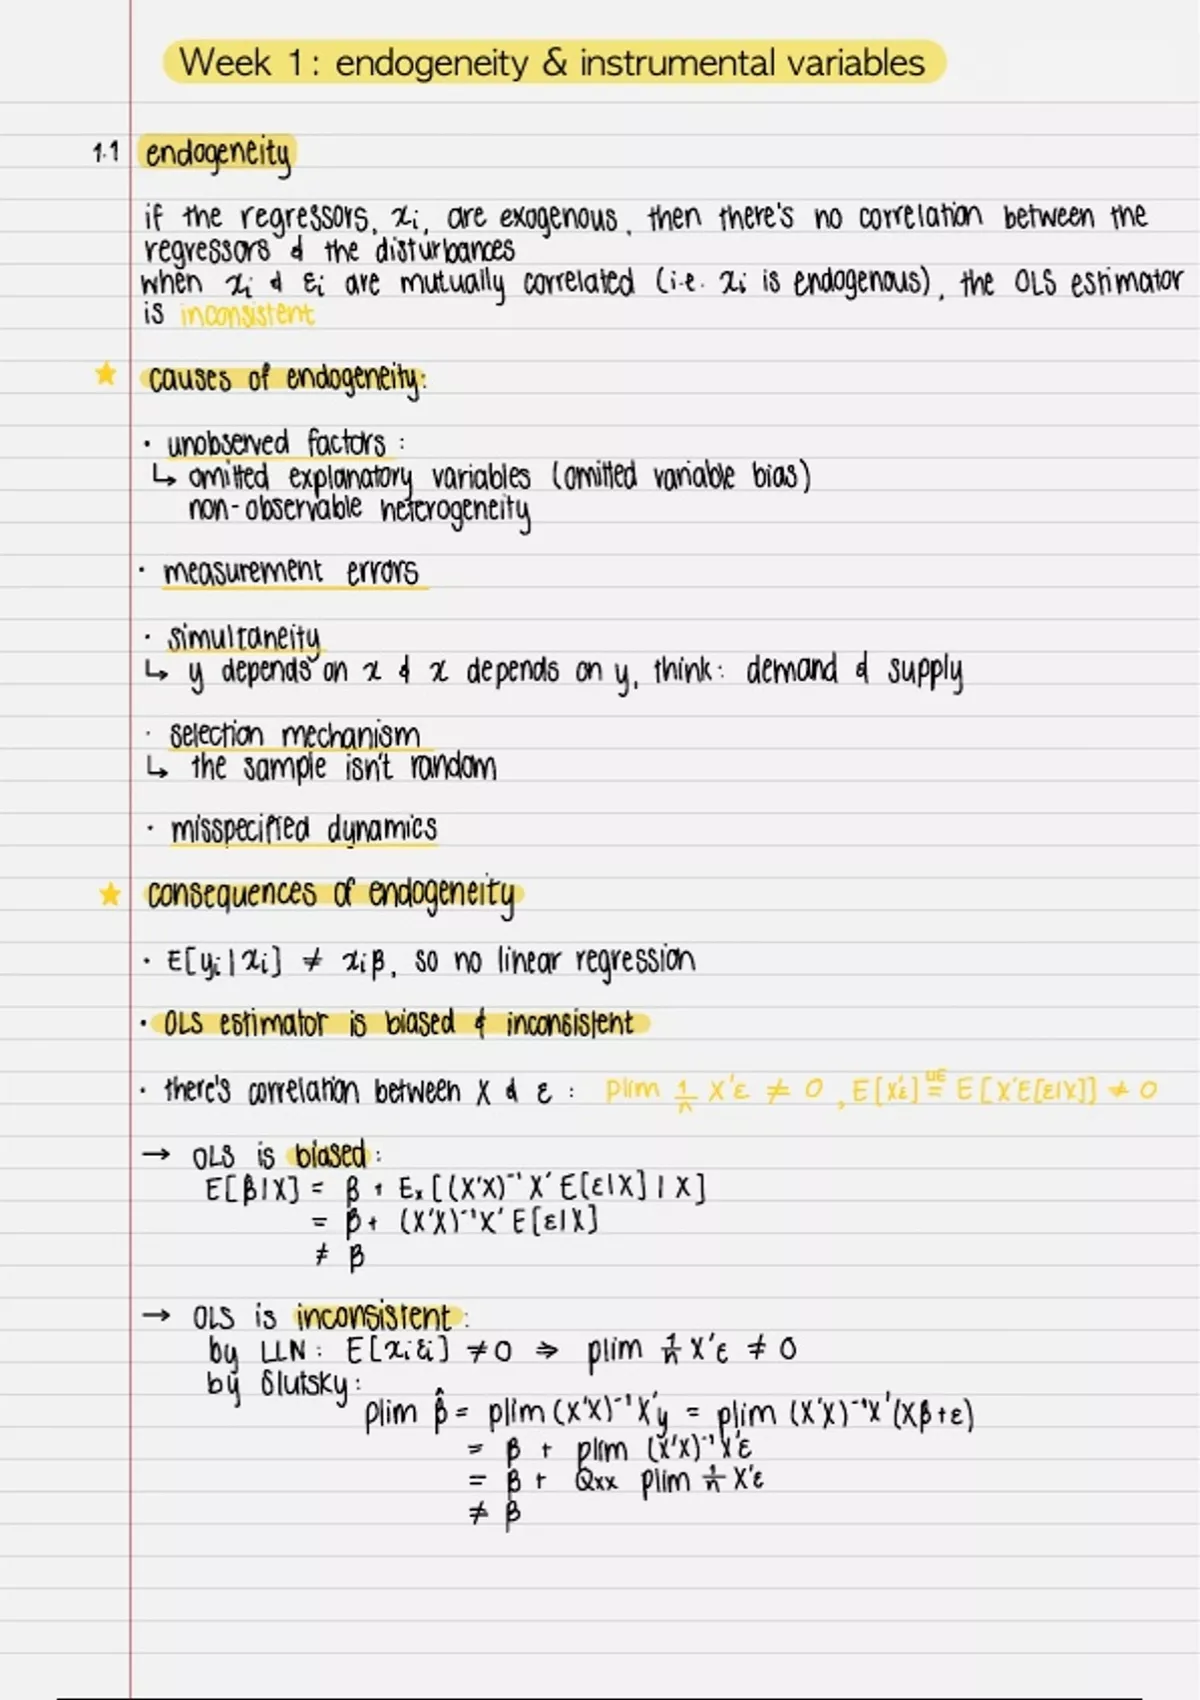 Week 1: endogeneity & instrumental variables
1.1 endogeneity
if the regressors, xi, are exogenous, then there's no correlation between the
regressors & the disturbances
when xi & εi are mutually correlated (i.e. xi is endogenous), the OLS estimator
is inconsistent
★ causes of endogeneity:
· unobserved factors :
↳ omitted explanatory variables (omitted variable bias)
non-observable heterogeneity
· measurement errors
· simultaneity
↳ y depends on x & x depends on y, think: demand & supply
· selection mechanism
↳ the sample isn't random
· misspecified dynamics
★ consequences of endogeneity
· E[yi|xi] ≠ xiβ, so no linear regression
· OLS estimator is biased & inconsistent
· there's correlation between X & ε : plim 1/n X'ε ≠ 0, E[X'ε] =^{LIE} E[X'E[ε|X]] ≠ 0
→ OLS is biased :
E[β|X] = β + Ex[(X'X)⁻¹X'E[ε|X] | X]
= β + (X'X)⁻¹X'E[ε|X]
≠ β
→ OLS is inconsistent :
by LLN : E[xiεi] ≠ 0 ⇒ plim 1/n X'ε ≠ 0
by Slutsky :
plim β̂ = plim (X'X)⁻¹X'y = plim (X'X)⁻¹X'(Xβ+ε)
= β + plim (X'X)⁻¹X'ε
= β + Qxx plim 1/n X'ε
≠ β